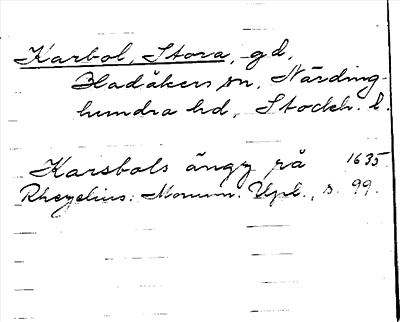 Karbol, Stora, gd,
Bladåkers sn, Närding-
hundra hd, Stockh. l.
Karsbols ängy på 1635
Rhezelius: Monum. Upl., s. 99.